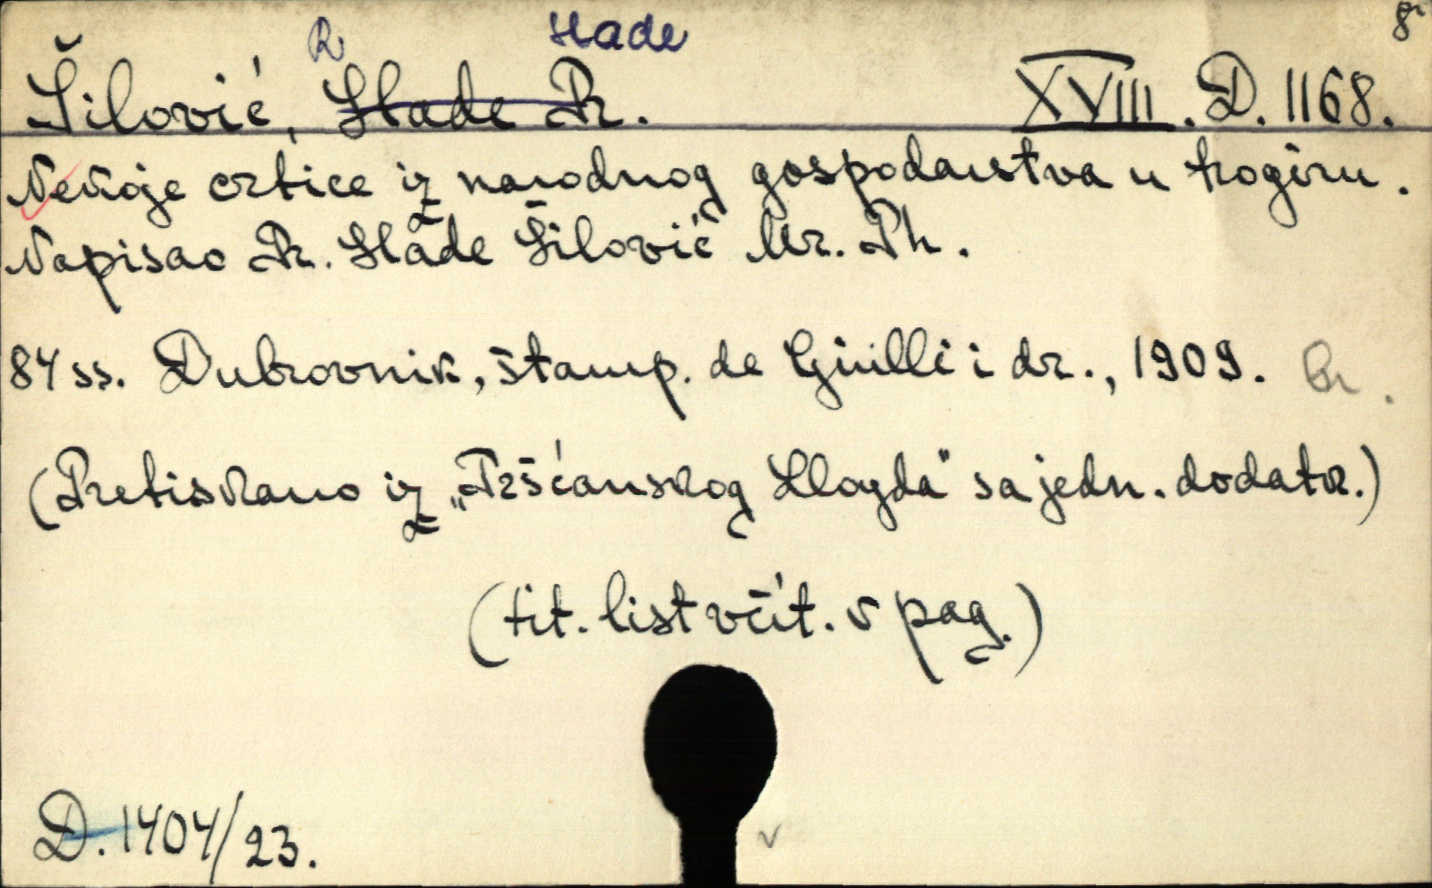 R. Slade 8°
Šilović, Slade R. XVIII. D. 1168.
Nekoje crtice iz narodnog gospodarstva u Trogiru.
Napisao R. Slade Šilović Mr. Ph.
84 ss. Dubrovnik, štamp. de Giulli i dr., 1909.
(Pretiskano iz „Tršćanskog Lloyda" sa jedn. dodatk.)
(tit. list včít. v pag.)
D. 1404/23.
v